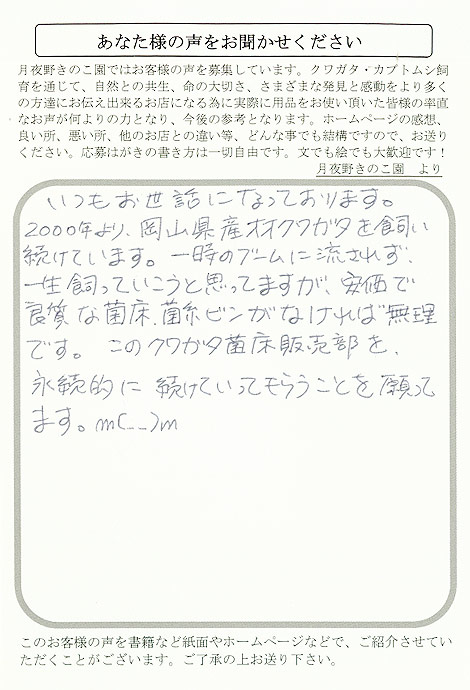 あなた様の声をお聞かせください
月夜野きのこ園ではお客様の声を募集しています。クワガタ・カブトムシ飼
育を通じて、自然との共生、命の大切さ、さまざまな発見と感動をより多く
の方達にお伝え出来るお店になる為に実際に用品をお使い頂いた皆様の率直
なお声が何よりの力となり、今後の参考となります。ホームページの感想、
良い所、悪い所、他のお店との違い等、どんな事でも結構ですので、お送り
ください。応募はがきの書き方は一切自由です。文でも絵でも大歓迎です！
月夜野きのこ園　より
いつもお世話になっております。
2000年より、岡山県産オオクワガタを飼い
続けています。一時のブームに流されず、
一生飼っていこうと思ってますが、安価で
良質な菌床、菌糸ビンがなければ無理
です。このクワガタ菌床販売部を、
永続的に続けていってもらうことを願って
ます。m(__)m
このお客様の声を書籍など紙面やホームページなどで、ご紹介させてい
ただくことがございます。ご了承の上お送り下さい。